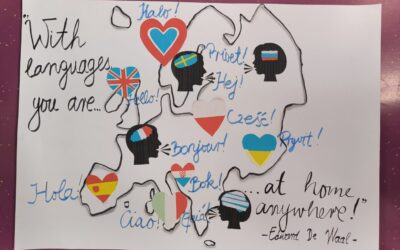 "With
languages
you are...
Halo!
Privet!
Hej!
Hello!
Cześć!
Bonjour!
Hola!
Bok!
Ciao!
...at home
anywhere!"
- Edmund De Waal -